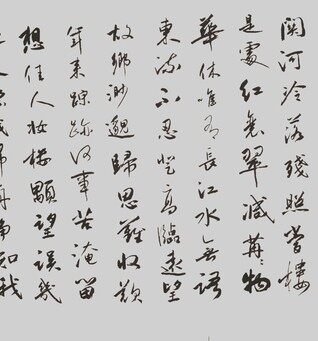 関河冷落殘照當樓
是處紅衰翠減苒〻物
華休唯有長江水無語
東流不忍登高臨遠望
故鄉渺邈歸思難收歎
年來蹤跡何事苦淹留
想佳人妝樓顒望誤幾
歸舟爭知我